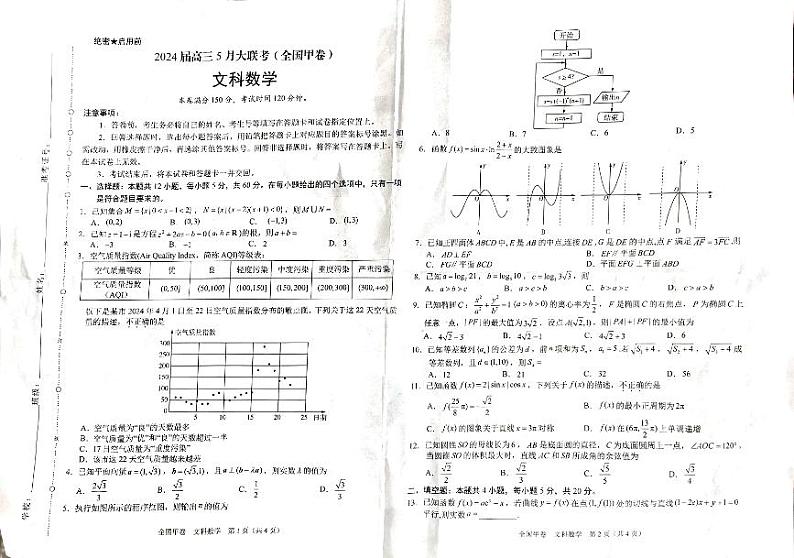 绝密★启用前
2024届高三5月大联考（全国甲卷）
文科数学
本卷满分150分，考试时间120分钟。
注意事项：
1．答卷前，考生务必将自己的姓名、考生号等填写在答题卡和试卷指定位置上。
2．回答选择题时，选出每小题答案后，用铅笔把答题卡上对应题目的答案标号涂黑。如
需改动，用橡皮擦干净后，再选涂其他答案标号。回答非选择题时，将答案写在答题卡上，写
在本试卷上无效。
3．考试结束后，将本试卷和答题卡一并交回。
一、选择题：本题共12小题，每小题5分，共60分，在每小题给出的四个选项中，只有一项
是符合题目要求的。
1．已知集合M={x|0<x-1<2}，N={x|(x-2)(x+1)<0}，则M∪N=
A．(0,2) B．(0,3) C．(-1,3) D．(1,3)
2．已知z=1-i是方程z²+2az-b=0(a,b∈R)的根，则a+b=
A．-3 B．-1 C．2 D．3
3．空气质量指数(Air Quality Index，简称AQI)等级表：
空气质量等级 优 良 轻度污染 中度污染 重度污染 严重污染
空气质量指数(AQI) (0,50] (50,100] (100,150] (150,200] (200,300] (300,+∞)
以下是某市2024年4月1日至22日空气质量指数分布的散点图，下列关于这22天空气质
量的描述，不正确的是
空气质量指数
300
250
200
150
100
50
0 5 10 15 20 25 日期
A．空气质量为“良”的天数最多
B．空气质量为“优”和“良”的天数超过一半
C．17日空气质量为“重度污染”
D．该市这22天空气质量越来越差
4．已知平面向量a=(1,√3)，b=(√3,1)，且a⊥(b-λa)，则实数λ的值为
A．2√3/3 B．√3/2 C．1 D．√3/3
5．执行如图所示的程序框图，则输出n的值为
全国甲卷 文科数学 第1页（共4页）
准考证号：
姓名：
班级：
学校：
开始
是
否
输出n
n=n+1
结束
A．8 B．7 C．6 D．5
6．函数f(x)=sin x·ln(2+x)/(2-x)的大致图象是
A B C D
7．已知正四面体ABCD中，E是AB的中点，连接DE，G是DE的中点，点F满足AF=3FC，则
A．AD⊥EF B．EF∥平面BCD
C．FG∥平面BCD D．平面EFG⊥平面ABC
8．已知a=log₂21，b=log₃10，c=log₃3，则
A．a>b>c B．a>c>b C．b>a>c D．c>b>a
9．已知椭圆C：x²/a²+y²/b²=1(a>b>0)的离心率为1/2，F是椭圆C的右焦点，P为椭圆C上
任意一点，|PF|的最大值为3√2．设点A(√2,1)，则|PA|+|PF|的最小值为
A．4√2-3 B．4√2-1 C．4√2+3 D．4√2+1
10．已知等差数列{aₙ}的公差为d，前n项和为Sₙ，
等差数列，且d∈(1,10)，则
A．12 B．21 C．32 D．56
11．已知函数f(x)=2|sin x|cos x，下列关于f(x)的描述，不正确的是
A．f(25π/8)=-√2/2 B．f(x)的最小正周期为2π
C．f(x)的图象关于直线x=3π对称 D．f(x)在(6π,13π/2)上单调递增
12．已知圆锥SO的母线长为6，AB是底面圆的直径，C为底面圆周上一点，∠AOC=120°，
当圆锥SO的体积最大时，直线AC和SB所成角的余弦值为
A．√2/2 B．√3/2 C．√5/5 D．√3/4
二、填空题：本题共4小题，每小题5分，共20分。
13．
平行，则实数a=________．
全国甲卷 文科数学 第2页（共4页）